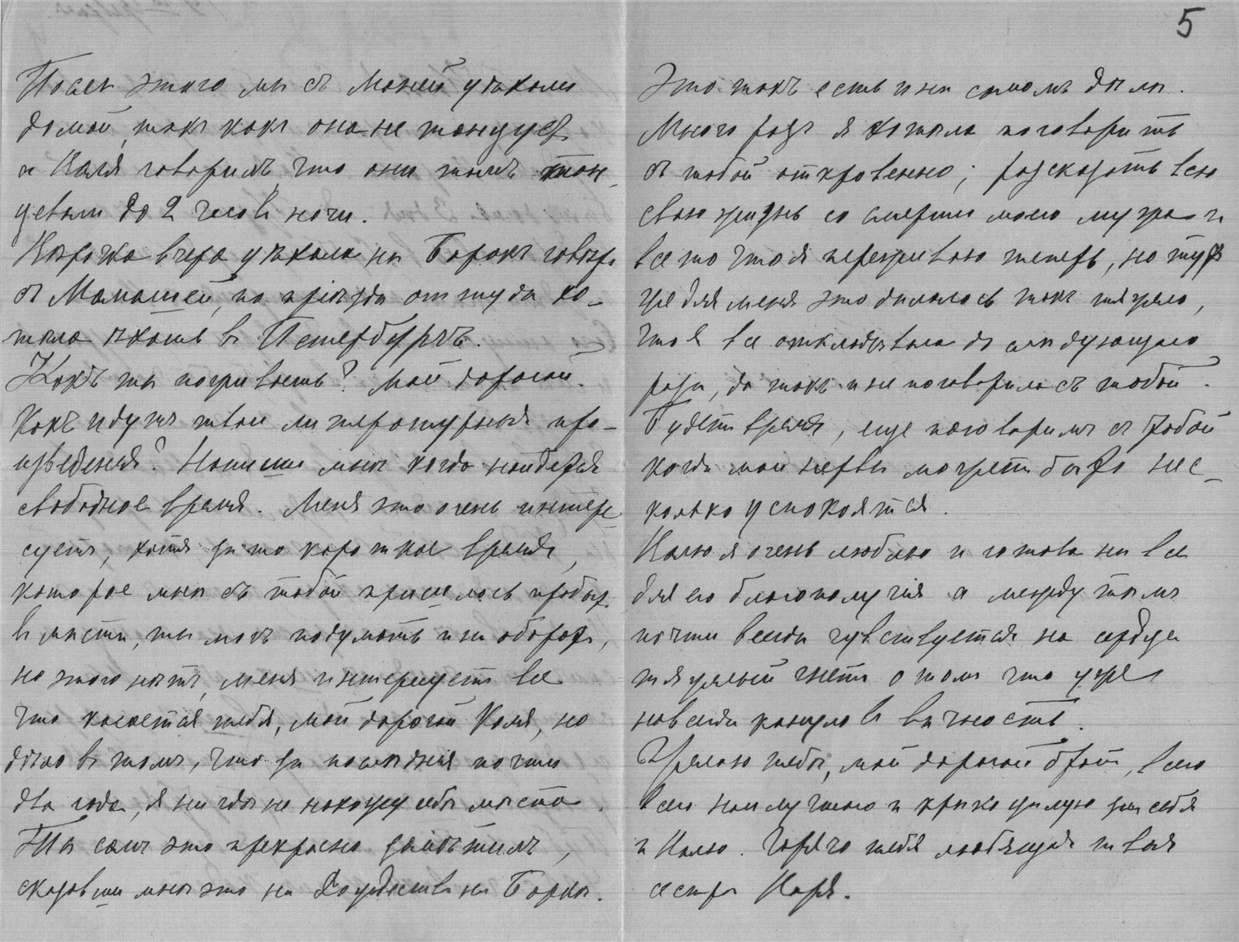 5
После этого мы съ Маней уѣхали
домой, такъ какъ она не танцуетъ
а Коля говоритъ, что они тамъ тан-
цевали до 2 часовъ ночи.
вчера уѣхала на Борокъ говѣть
съ Мамашей, на отъ туда хо-
тѣла ѣхать въ Петербургъ.
Какъ ты поживаешь? мой дорогой.
Какъ идутъ твои литературныя про-
изведенія? Напиши мнѣ когда найдется
свободное время. Меня это очень интере-
суетъ, хотя за то короткое время,
которое мнѣ съ тобой пришлось пробыть
вмѣстѣ, ты могъ подумать и на оборотъ,
но этого нѣтъ, меня интересуетъ все
что касается тебя, мой дорогой Коля, но
дѣло въ томъ, что за послѣдніе почти
два года, я нигдѣ не нахожу себѣ мѣста
Ты самъ это прекрасно замѣтилъ,
сказавши мнѣ это на Рождествѣ на Боркѣ.
Это такъ есть и на самомъ дѣлѣ.
Много разъ я хотѣла поговорить
съ тобой откровенно; разсказать всю
свою жизнь со смерти моего мужа и
все то что я переживаю теперь, но
для меня это дѣлалось такъ тяжело,
что я все откладывала до слѣдующаго
раза, да такъ и не поговорила съ тобой.
Будетъ время, еще поговоримъ съ тобой
когда мои нервы можетъ быть нес-
колько успокоятся.
Колю я очень люблю и готова на все
для его благополучія а между тѣмъ
почти всегда чувствуется на сердце
тяжелый гнетъ о томъ что уже
навсегда кануло въ вѣчность.
Желаю тебѣ, мой дорогой братъ, всего
всего наилучшаго и крѣпко цѣлую за себя
и Колю. Горячо тебя любящая твоя
сестра Катя.